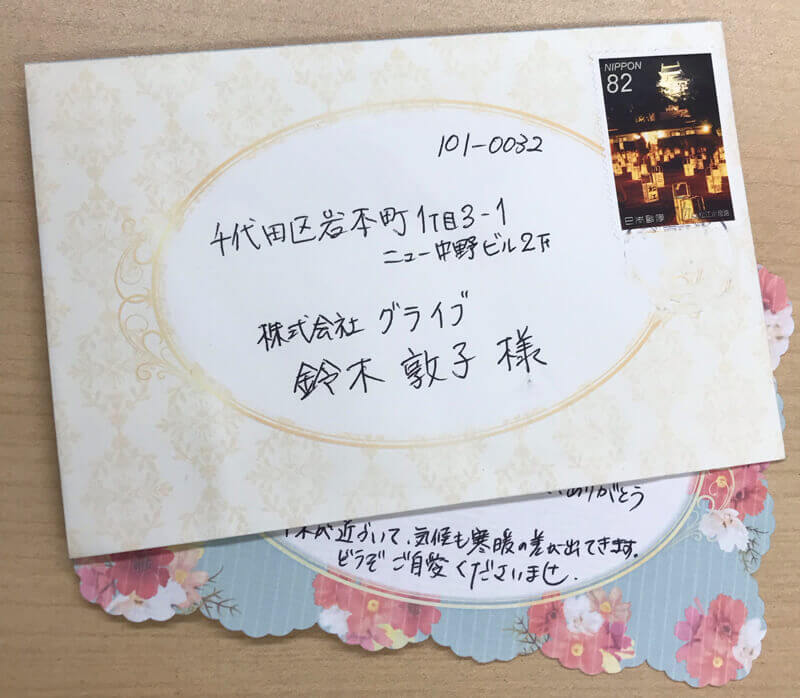 NIPPON
82
101-0032
千代田区岩本町1丁目3-1
ニュー中野ビル2F
株式会社 グライブ
鈴木 敦子 様
日本郵便
ありがとう
が近づいて、気候も寒暖の差が出てきます。
どうぞご自愛くださいませ.